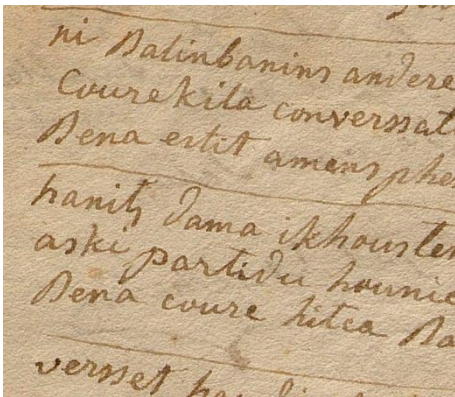 ni Batinbanins andere
Courekila converssat
Bena estit amensphe
hanits dama ikhousten
aski partidu hounie
Bena coure hitca Ba
versset